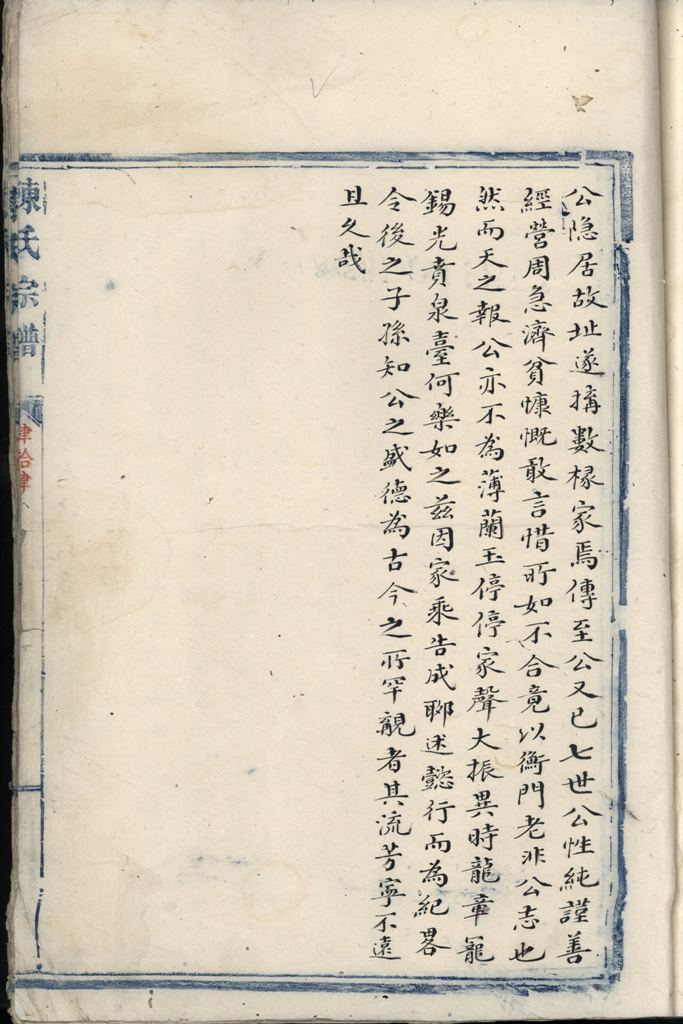 公隐居故址遂搆數椽家焉傳至公又已七世公性純謹善
經營周急濟貧慷慨敢言惜所如不合竟以衡門老非公志也
然而天之報公亦不為薄蘭玉停停家聲大振異時龍章寵
錫光賁泉臺何樂如之茲因家乘告成聊述懿行而為紀畧
令後之子孫知公之盛德為古今之所罕覯者其流芳寧不遠
且久哉
陳氏宗譜